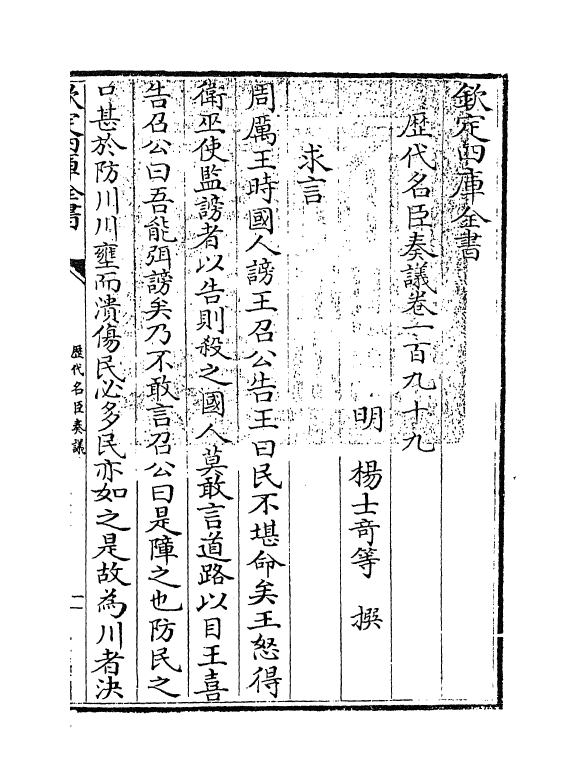 欽定四庫全書
歴代名臣奏議卷一百九十九
明 楊士奇等 撰
求言
周厲王時國人謗王召公告王曰民不堪命矣王怒得
衛巫使監謗者以告則殺之國人莫敢言道路以目王喜
告召公曰吾能弭謗矣乃不敢言召公曰是障之也防民之
口甚於防川川壅而潰傷民必多民亦如之是故為川者決
欽定四庫全書
歴代名臣奏議